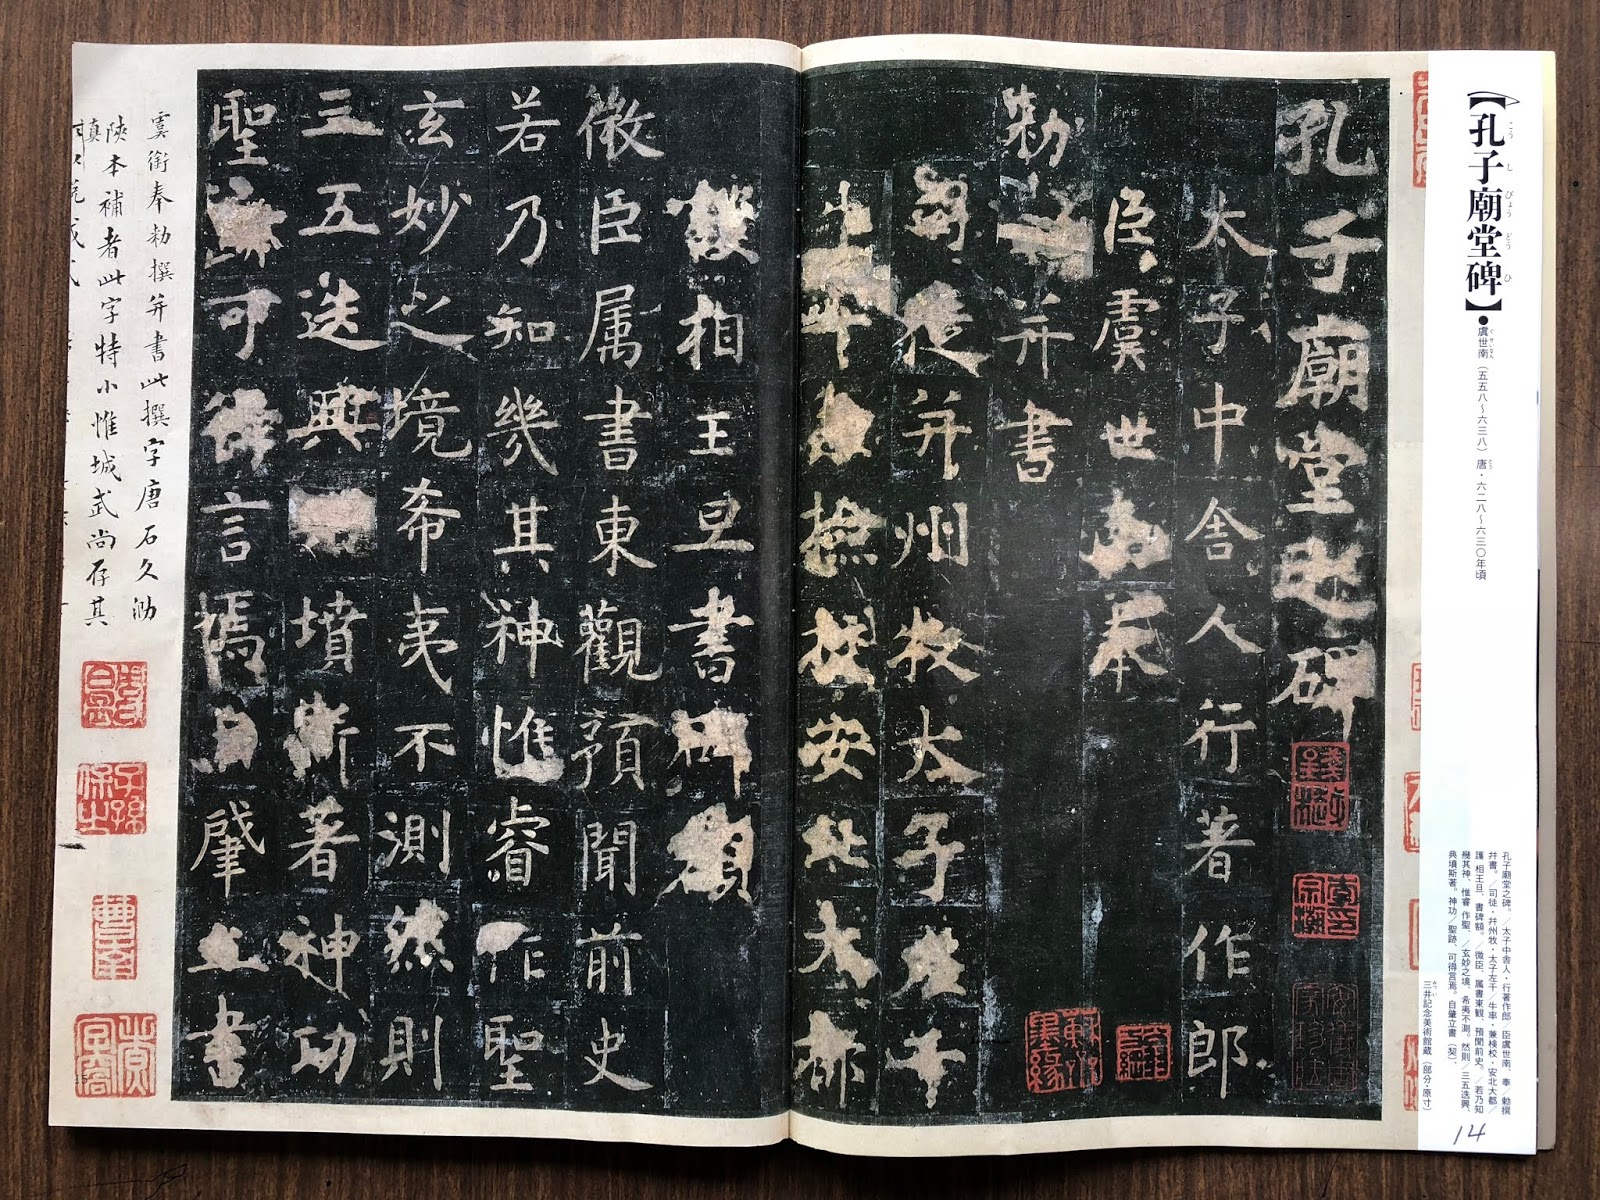 【孔子廟堂碑】●虞世南（五五八～六三八）唐・六二八～六三〇年頃
こうしびょうどうひ
ぐせいなん
とう
孔子廟堂之碑。／太子中舎人・行著作郎 臣虞世南、奉／勅撰
并書。／司徒・并州牧・太子左千／牛率・兼検校・安北大都／
護 相王旦、書碑額。／微臣、属書東観、預聞前史。／若乃知
幾其神、惟睿 作聖、／玄妙之境、希夷不測。然則／三五迭興、
典墳斯著。神功／聖跡、可得言焉。自肇立書（契）、
みつい
三井記念美術館蔵（部分・原寸）
14
孔子廟堂之碑
太子中舎人行著作郎
臣虞世南奉
勅撰并書
司徒并州牧太子左千
牛率兼檢校安北大都
護相王旦書碑額
微臣属書東觀預聞前史
若乃知幾其神惟睿作聖
玄妙之境希夷不測然則
三五迭興典墳斯著神功
聖跡可得言焉自肇立書
虞銜奉勅撰并書此撰字唐石久泐
陝本補者此字特小惟城武尚存其